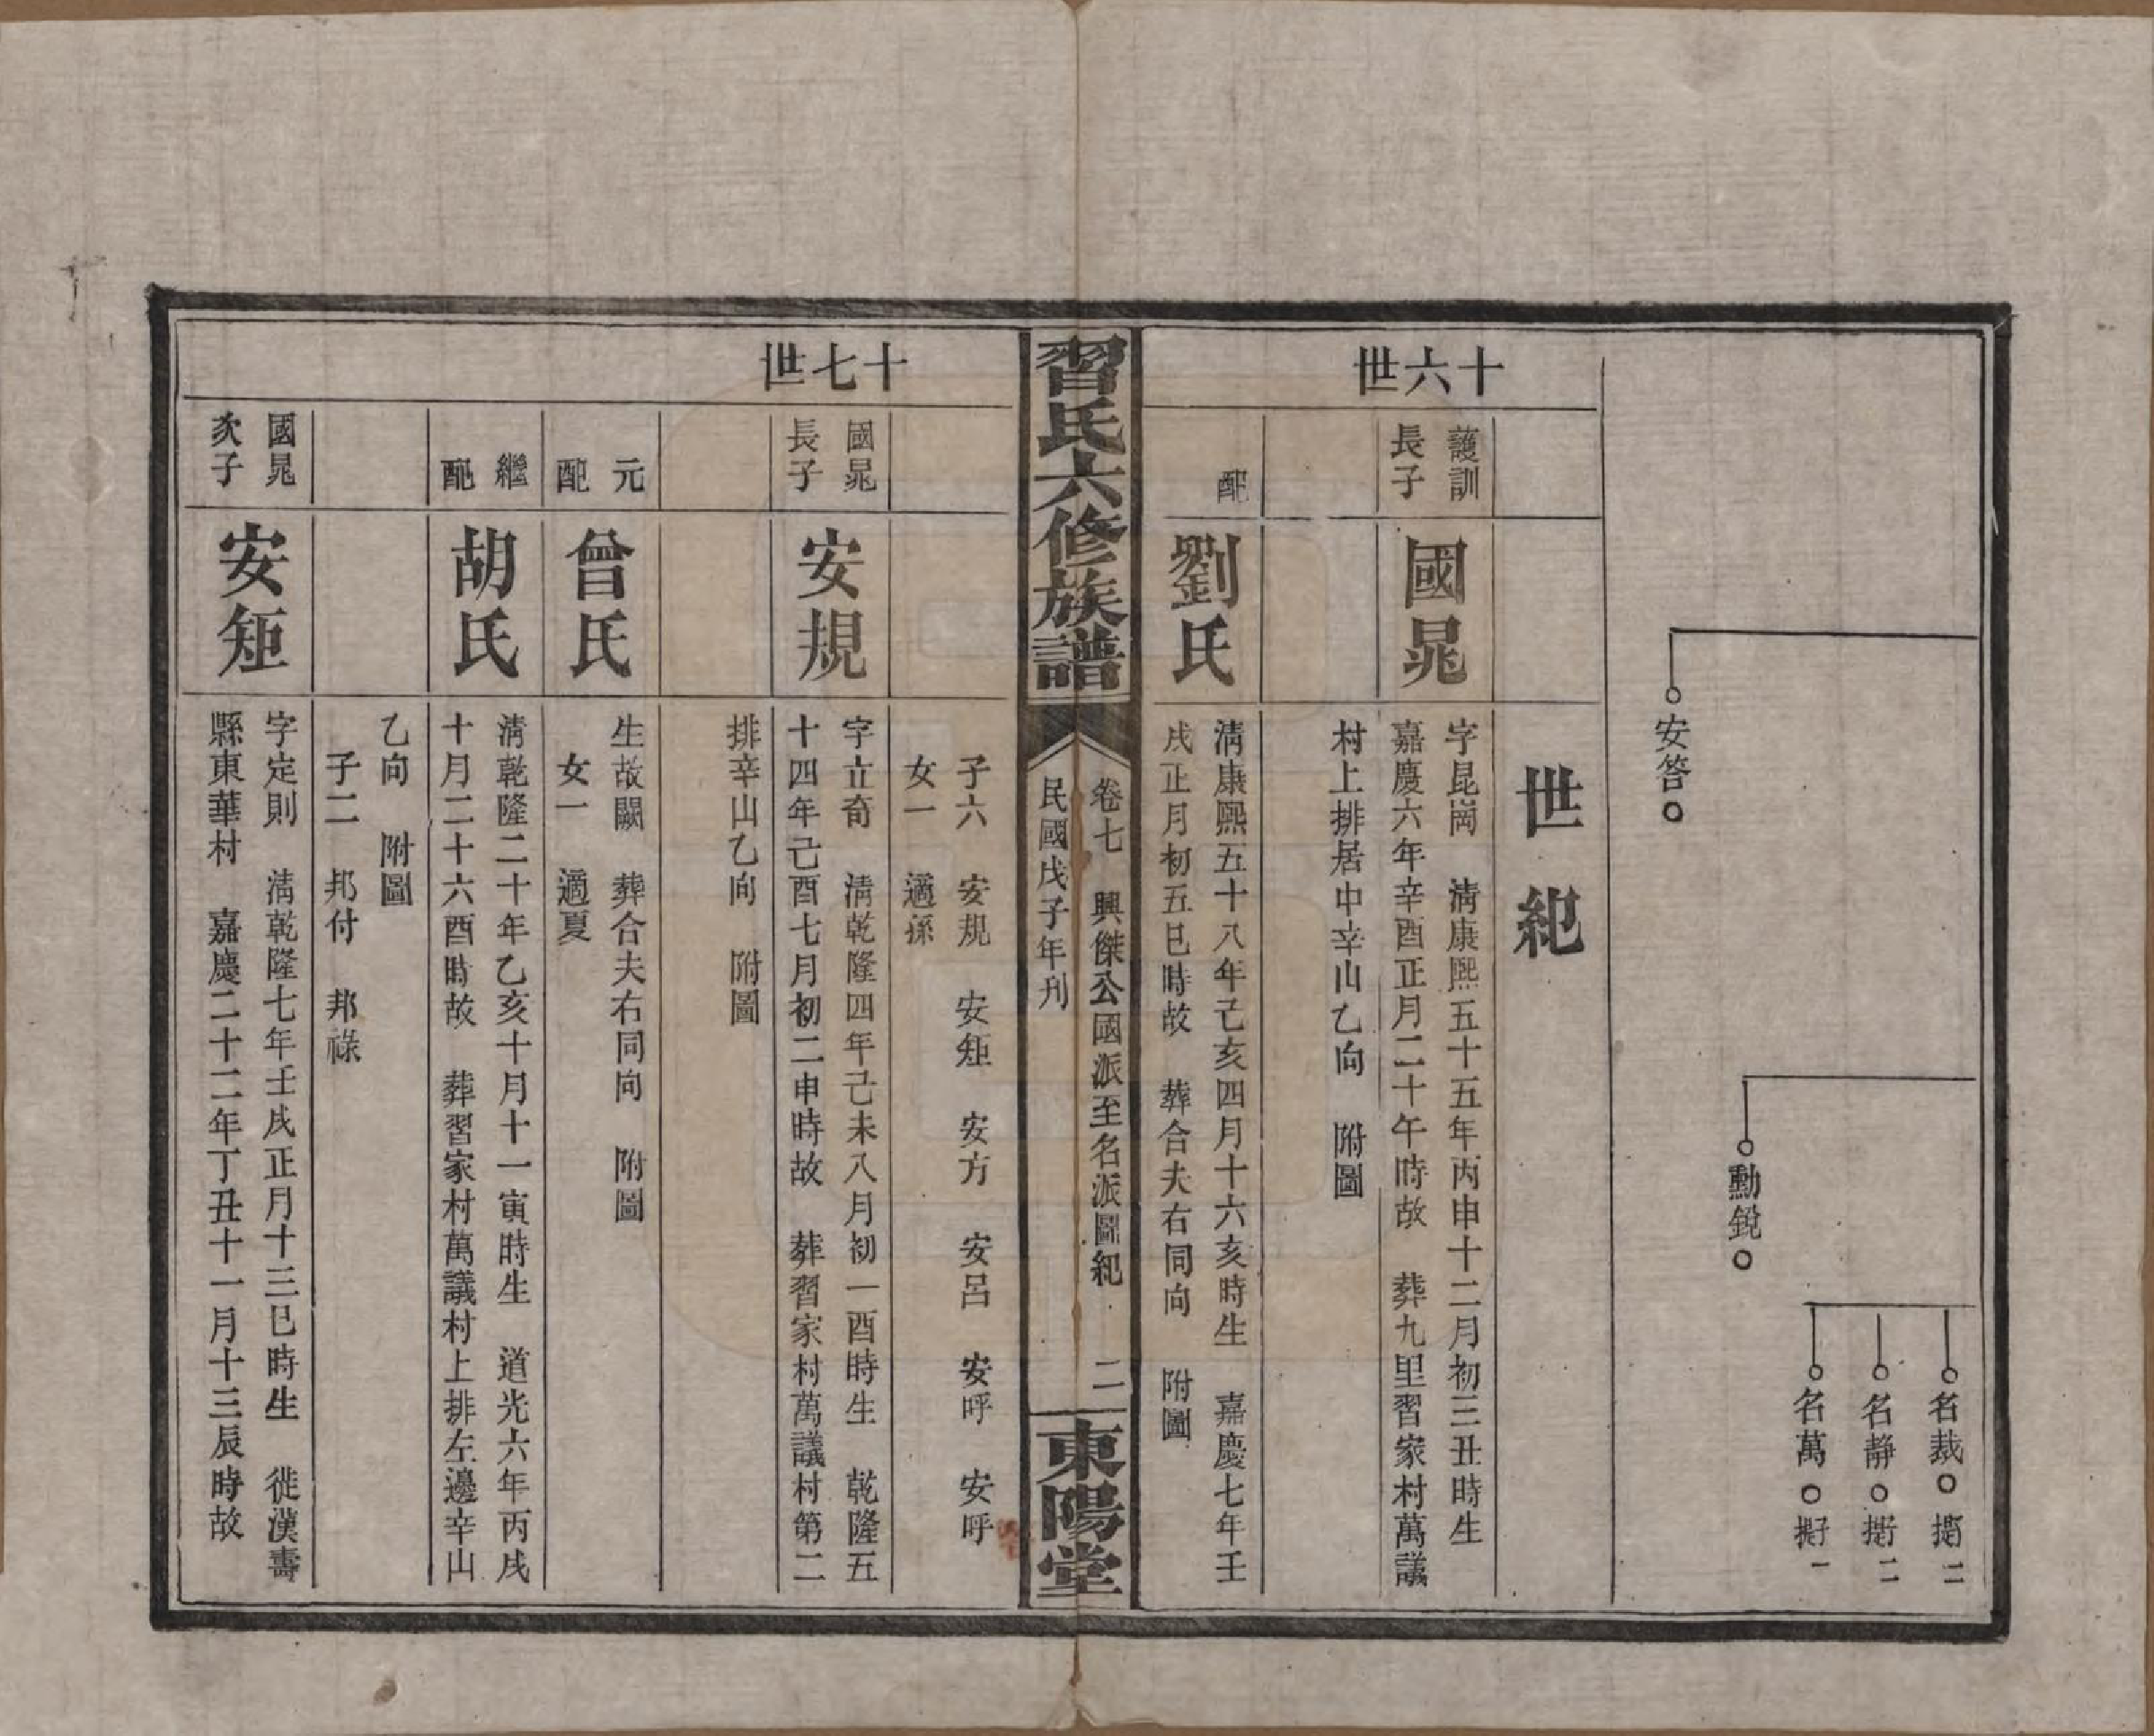 名裁○
名靜○
名萬○
勳銳○
安答○
世紀
十六世
護訓
長子
國晁
字昆崗　淸康熙五十五年丙申十二月初三丑時生
嘉慶六年辛酉正月二十午時故　葬九里習家村萬議
村上排居中辛山乙向　附圖
配
劉氏
淸康熙五十八年己亥四月十六亥時生　嘉慶七年壬
戌正月初五巳時故　葬合夫右同向　附圖
習氏六修族譜
卷七　興傑公國派至名派圖紀　二
民國戊子年刊
東陽堂
子六　安規　安矩　安方　安呂　安呼　安呼
女一　適孫
十七世
國晁
長子
安規
字立奇　淸乾隆四年己未八月初一酉時生　乾隆五
十四年己酉七月初二申時故　葬習家村萬議村第二
排辛山乙向　附圖
元
配
曾氏
生故闕　葬合夫右同向　附圖
女一　適夏
繼
配
胡氏
淸乾隆二十年乙亥十月十一寅時生　道光六年丙戌
十月二十六酉時故　葬習家村萬議村上排左邊辛山
乙向　附圖
子二　邦付　邦祿
國晁
次子
安矩
字定則　淸乾隆七年壬戌正月十三巳時生　徙漢壽
縣東華村　嘉慶二十二年丁丑十一月十三辰時故